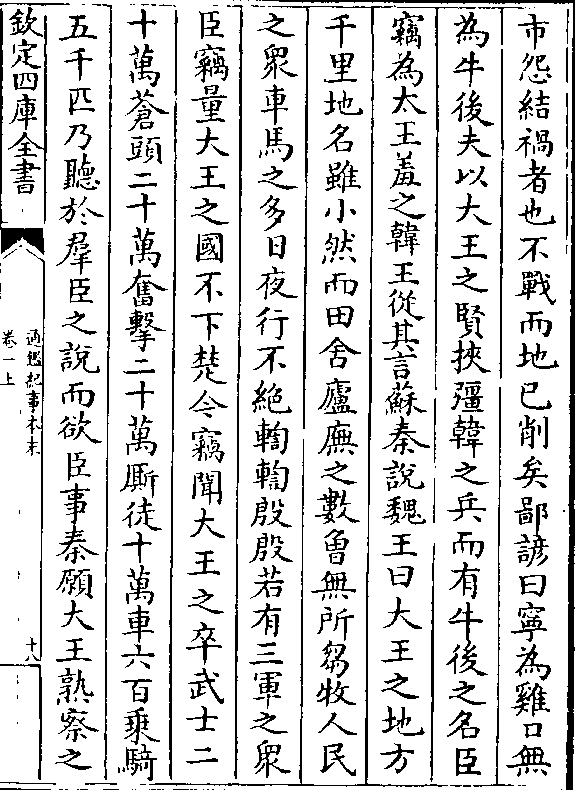 市怨結禍者也不戰而地已削矣鄙諺曰寧為雞口無
為牛後夫以大王之賢挾彊韓之兵而有牛後之名臣
竊為大王羞之韓王從其言蘇秦說魏王曰大王之地方
千里地名雖小然而田舍廬廡之數曾無所芻牧人民
之衆車馬之多日夜行不絶輷輷殷殷若有三軍之衆
臣竊量大王之國不下楚今竊聞大王之卒武士二
十萬蒼頭二十萬奮擊二十萬厮徒十萬車六百乘騎
五千匹乃聽於羣臣之說而欲臣事秦願大王熟察之
欽定四庫全書
通鑑紀事本末
卷一上
十八